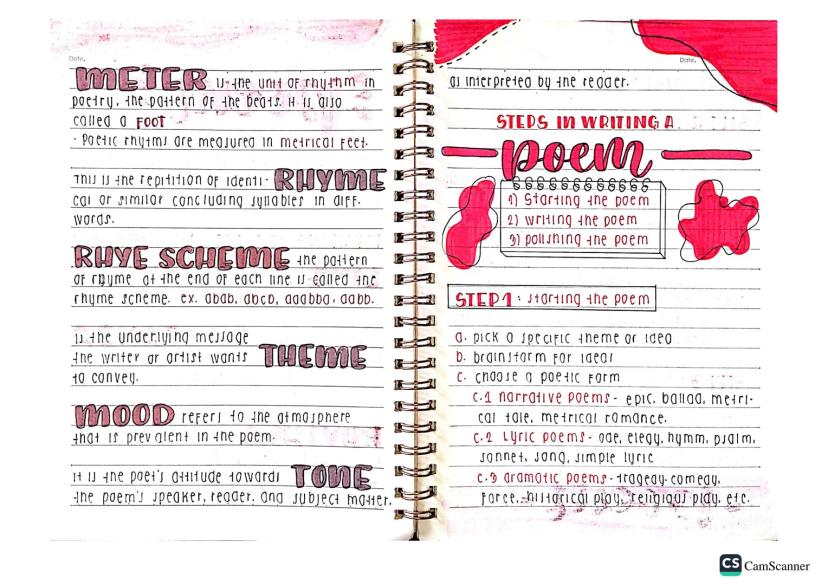 Date.
METER is the unit of rhythm in
poetry, the pattern of the beats. it is also
called a FOOT.
· Poetic rhytms are measured in metrical feet.
This is the repitition of identi- RHYME
cal or similar concluding syllables in diff.
words.
RHYE SCHEME the pattern
of rhyme at the end of each line is called the
rhyme scheme. ex. abab, abcb, aabba, aabb.
is the underlying message
the writer or artist wants THEME
to convey.
MOOD refers to the atmosphere
that is prevalent in the poem.
it is the poet's attitude towards TONE
the poem's speaker, reader, and subject matter.
Date.
as interpreted by the reader.
STEPS IN WRITING A
poem
1) Starting the poem
2) writing the poem
3) polishing the poem
STEP 1: starting the poem
a. pick a specific theme or idea
b. brainstorm for ideas
c. choose a poetic form
c.1 narrative poems - epic, ballad, metri-
cal tale, metrical romance.
c.2 Lyric poems - ode, elegy, hymm, psalm,
sonnet, song, simple lyric
c.3 dramatic poems - tragedy, comedy,
farce, historical play, religious play, etc.
CS CamScanner